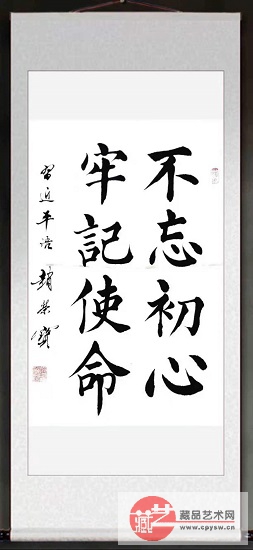 不忘初心
牢記使命
習近平語 趙景寶
藏品艺术网
www.cpysw.cn